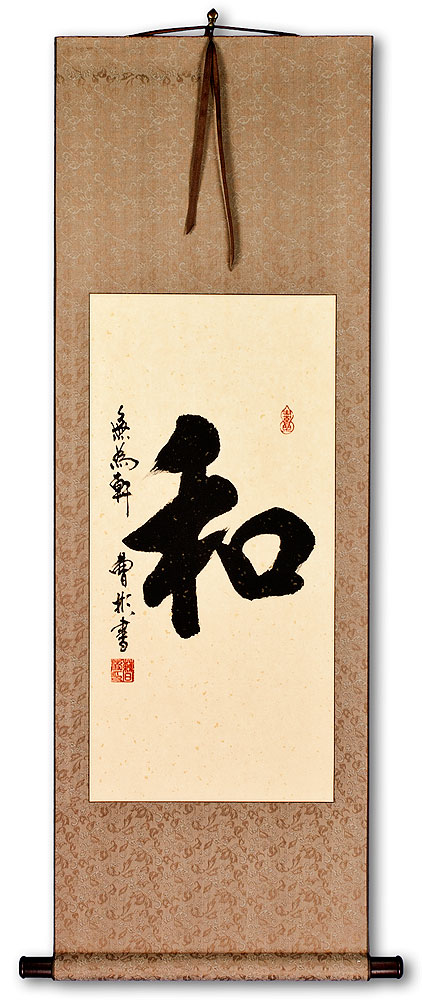 和
無為軒 曹彬書